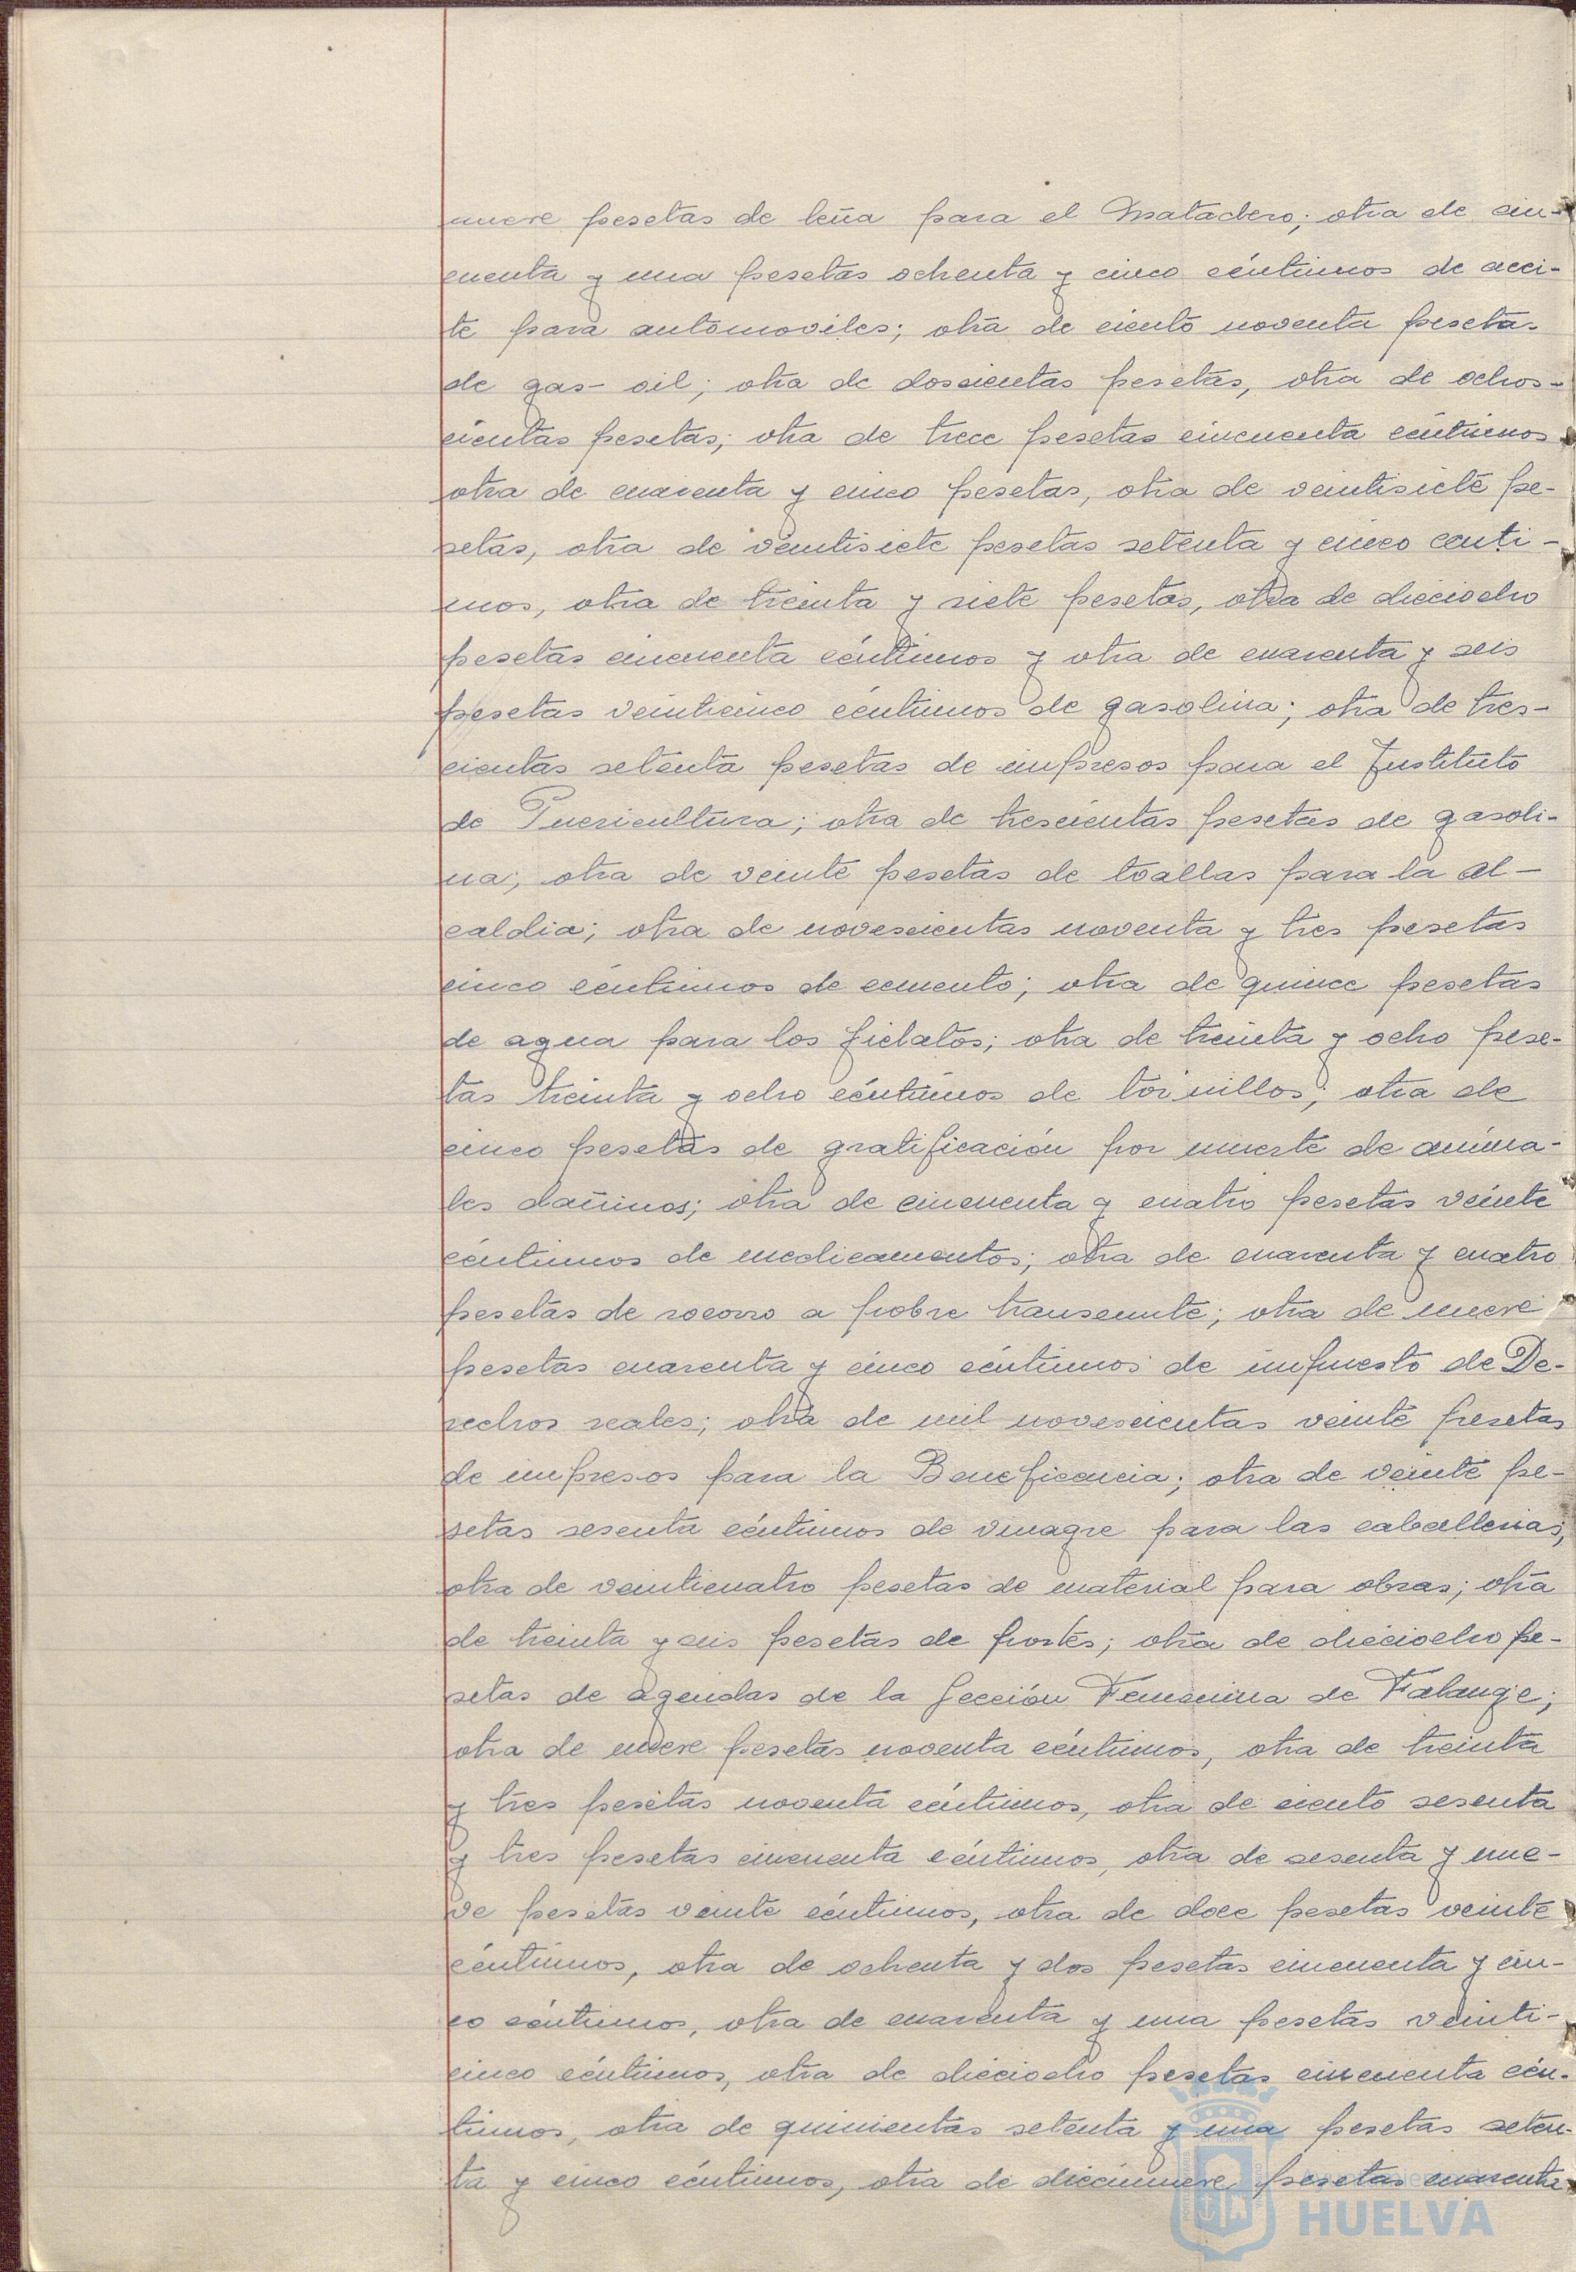 nueve pesetas de leña para el Matadero; otra de cin-
cuenta y una pesetas ochenta y cinco céntimos de acei-
te para automoviles; otra de ciento noventa pesetas
de gas-oil; otra de doscientas pesetas, otra de ochos-
cientas pesetas; otra de trece pesetas cincuenta céntimos
otra de cuarenta y cinco pesetas, otra de veintisiete pe-
setas, otra de veintisiete pesetas setenta y cinco centi-
mos, otra de treinta y siete pesetas, otra de dieciocho
pesetas cincuenta céntimos y otra de cuarenta y seis
pesetas veinticinco céntimos de gasolina; otra de tres-
cientas setenta pesetas de impresos para el Instituto
de Puericultura; otra de trescientas pesetas de gasoli-
na; otra de veinte pesetas de toallas para la Al-
caldia; otra de novescientas noventa y tres pesetas
cinco céntimos de cemento; otra de quince pesetas
de agua para los fielatos; otra de treinta y ocho pese-
tas treinta y ocho céntimos de tornillos; otra de
cinco pesetas de gratificación por muerte de anima-
les dañinos; otra de cincuenta y cuatro pesetas veinte
céntimos de medicamentos; otra de cuarenta y cuatro
pesetas de socorro a pobre transeunte; otra de nueve
pesetas cuarenta y cinco céntimos de impuesto de De-
rechos reales; otra de mil novescientas veinte pesetas
de impresos para la Beneficencia; otra de veinte pe-
setas sesenta céntimos de vinagre para las caballerias;
otra de veinticuatro pesetas de material para obras; otra
de treinta y seis pesetas de portes; otra de dieciocho pe-
setas de agendas de la Sección Femenina de Falange;
otra de nueve pesetas noventa céntimos, otra de treinta
y tres pesetas noventa céntimos, otra de ciento sesenta
y tres pesetas cincuenta céntimos, otra de sesenta y nue-
ve pesetas veinte céntimos, otra de doce pesetas veinte
céntimos, otra de ochenta y dos pesetas cincuenta y cin-
co céntimos, otra de cuarenta y una pesetas veinti-
cinco céntimos, otra de dieciocho pesetas cincuenta cén-
timos, otra de quinientas setenta y una pesetas seten-
ta y cinco céntimos, otra de diecinueve pesetas cuarenta
HUELVA